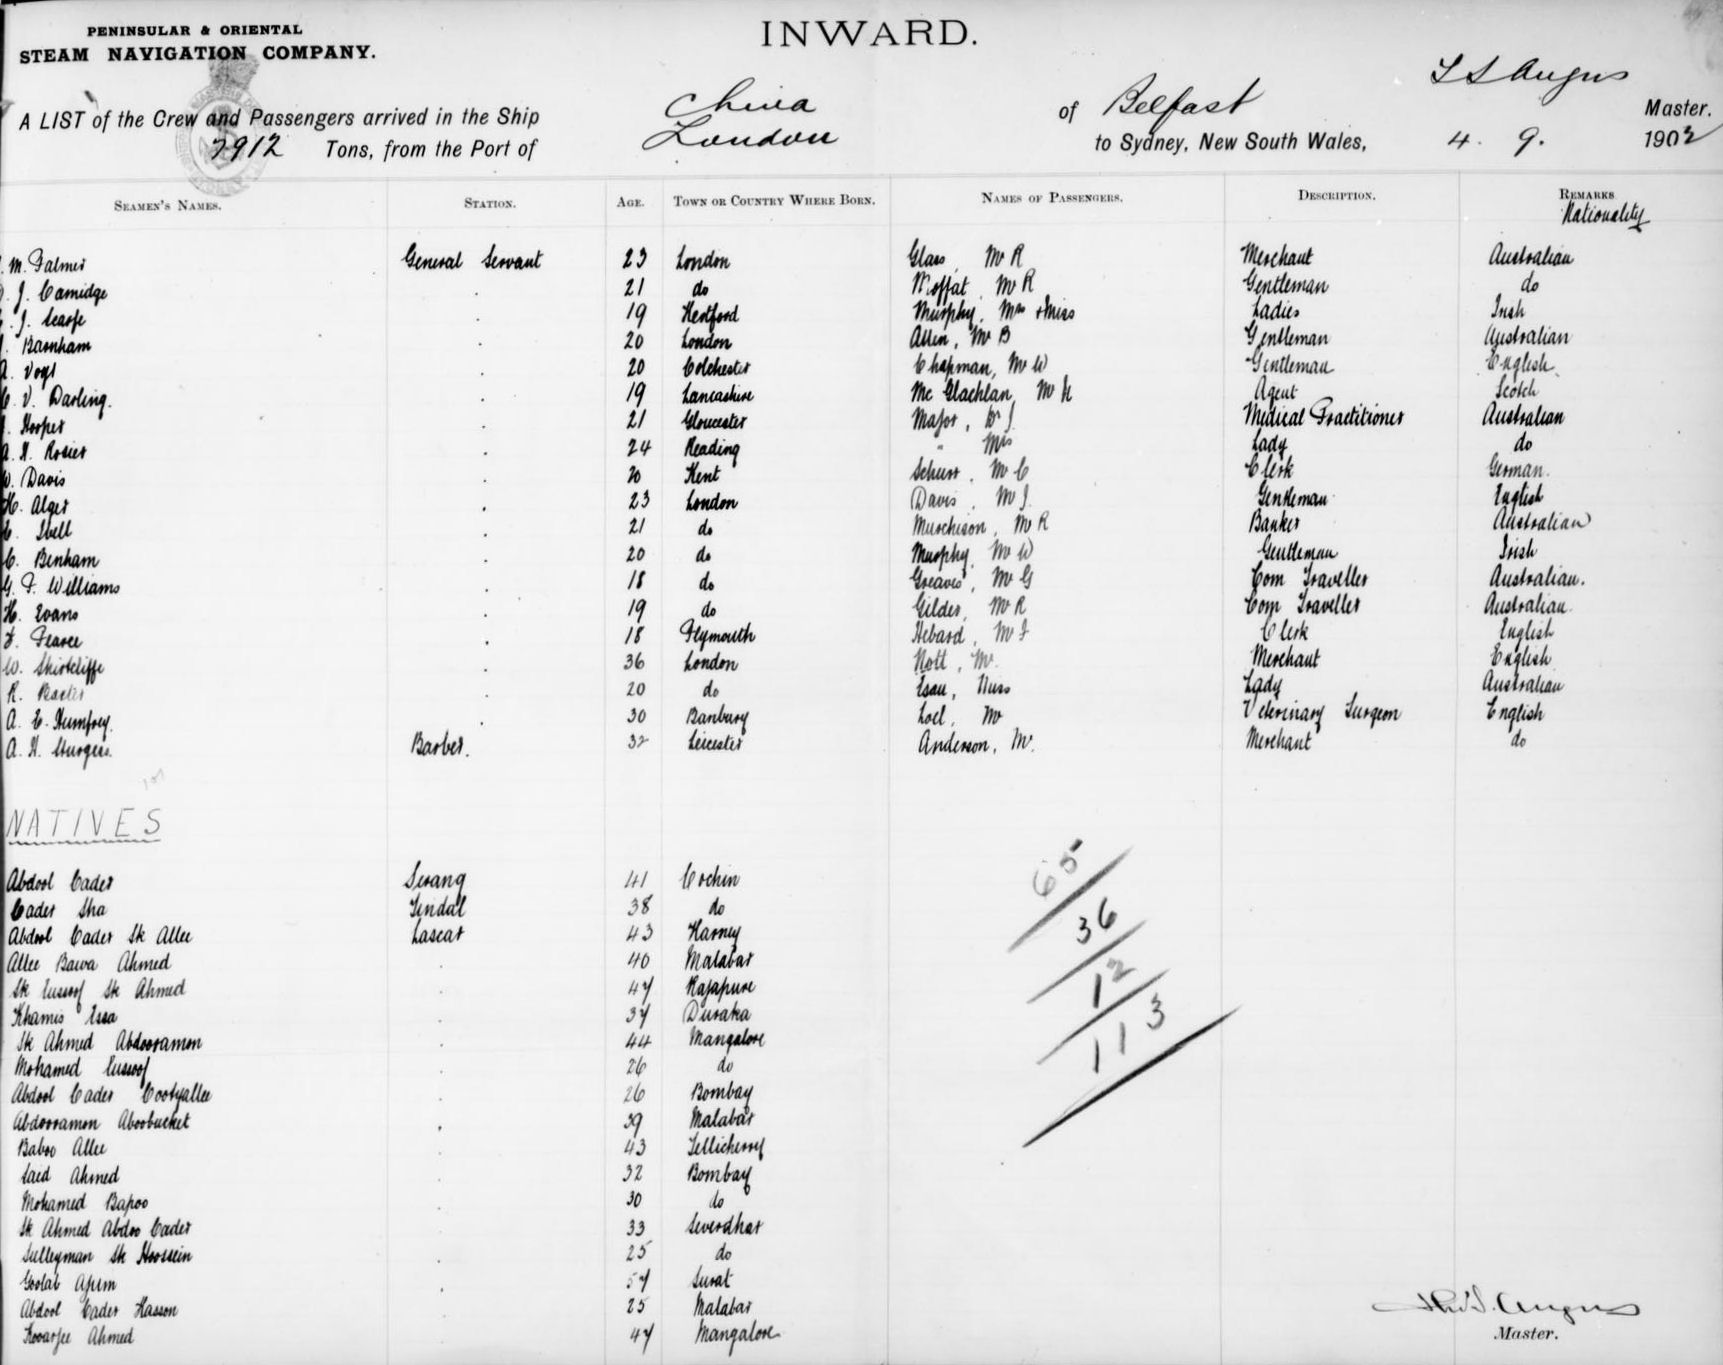 PENINSULAR & ORIENTAL
STEAM NAVIGATION COMPANY.
INWARD.
T S Angus
A LIST of the Crew and Passengers arrived in the Ship China of Belfast Master.
7912 Tons, from the Port of London to Sydney, New South Wales, 4. 9. 1902
SEAMEN'S NAMES. STATION. AGE. TOWN OR COUNTRY WHERE BORN. NAMES OF PASSENGERS. DESCRIPTION. REMARKS
Nationality
M. Palmer General Servant 23 London Glass, Mr R Merchant Australian
J. Camidge 21 do Moffat, Mr R Gentleman do
J. Scarfe 19 Hertford Murphy, Mrs + Miss Ladies Irish
Barnham 20 London Allen, Mr B Gentleman Australian
Vogt 20 Colchester Chapman, Mr W Gentleman English
V. Darling. 19 Lancashire Mc Glachlan, Mr Agent Scotch
Hooper 21 Gloucester Major, Dr J. Medical Practitioner Australian
A. H. Rosier 24 Reading " Mrs Lady do
W. Davis 20 Kent Mr C Clerk German.
H. Alger 23 London Davis, Mr J. Gentleman English
21 do Murchison, Mr R Banker Australian
C. Benham 20 do Murphy, Mr W Gentleman Irish
G. F. Williams 18 do Greaves, Mr G Com Traveller Australian.
H. Evans 19 do Gilder, Mr R Com Traveller Australian.
F. Pearce 18 Plymouth Hebard, Mr F Clerk English
W. Shirtcliffe 36 London Nott, Mr. Merchant English
R. 20 do Esau, Lady Australian
A. E. Humfrey. 30 Banbury Loel, Mr Veterinary Surgeon English
A. H. Sturgess. Barber. 32 Leicester Anderson, Mr. Merchant do
NATIVES
Abdool Cader Serang 41 Cochin
Cader Sha Tindal 38 do
Abdool Cader Sk Allee Lascar 43 Harney
Allee Bawa Ahmed 40 Malabar
Sk Eussoof Sk Ahmed 47 Rajapure
Khamis Essa 37 Duraka
Sk Ahmed Abdooramon 44 Mangalore
Mohamed Eussoof 26 do
Abdool Cader Cootyallee 26 Bombay
Abdooramon Aboobucket 39 Malabar
Baboo Allee 43 Tellicherry
Said Ahmed 32 Bombay
Mohamed Bapoo 30 do
Sk Ahmed Abdoo Cader 33 Severdhar
Sulleyman Sk Hoossein 25 do
Goolab 57 Surat
Abdool Cader Hasson 25 Malabar
Ahmed 47 Mangalore
65
36
12
113
Thos S. Angus
Master.